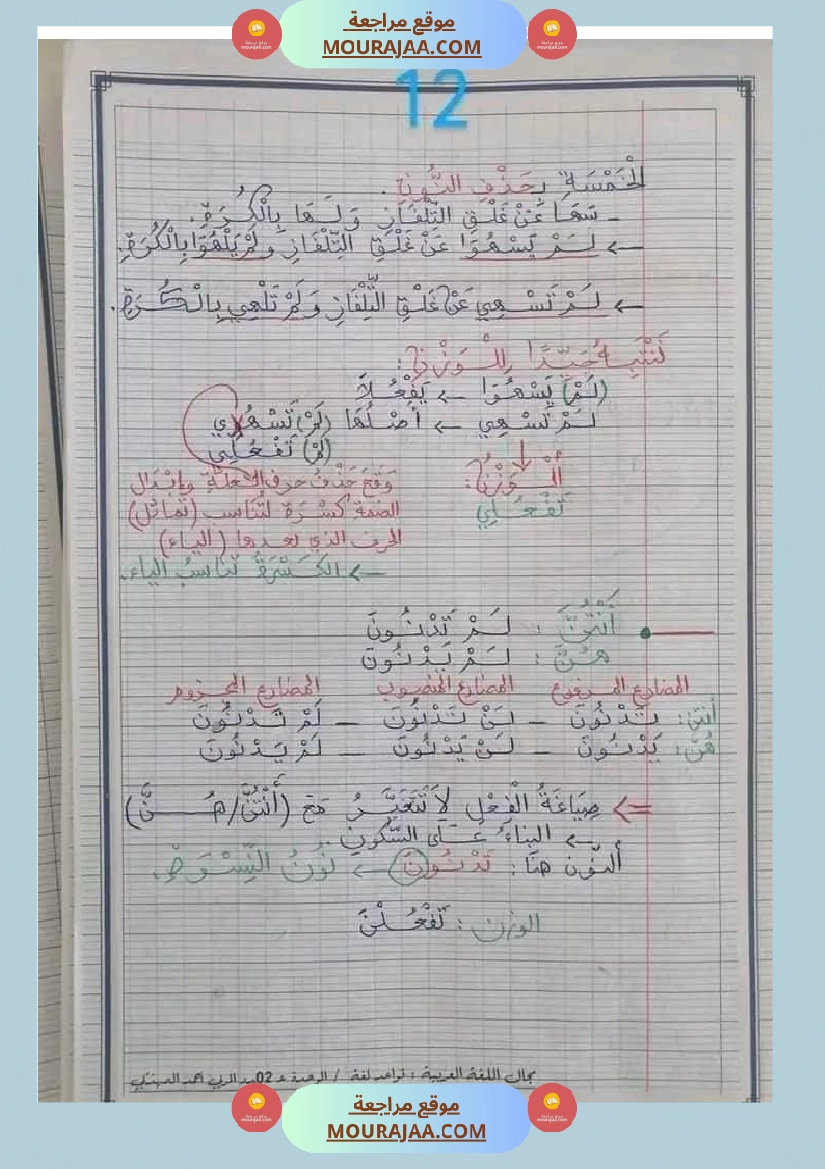 موقع مراجعة
MOURAJAA.COM
12
الْخَمْسَةِ بِحَذْفِ النُّونِ.
- سَهَا عَنْ غَلْقِ التِّلْفَازِ وَلَهَا بِالْكُرَةِ.
← لَمْ يَسْهُوَا عَنْ غَلْقِ التِّلْفَازِ وَلَمْ يَلْهُوَا بِالْكُرَةِ.
← لَمْ تَسْهِي عَنْ غَلْقِ التِّلْفَازِ وَلَمْ تَلْهِي بِالْكُرَةِ.
نَنْتَبِهُ جَيِّدًا لِلْوَزْنِ:
(لَمْ) يَسْهُوَا ← يَفْعُلَا
لَمْ تَسْهِي ← أَصْلُهَا (لَمْ) تَسْهُوِي
(لَمْ) تَفْعُلِي
الْوَزْنُ:
تَفْعُلِي
وَقَعَ حَذْفُ حرف العلّة وإبْدَال
الضمّة كَسْرَة لتُنَاسب (تماثل)
الحرف الذي بعدها (الياء)
← الكَسْرَةُ تناسبُ الياء.
أَنْتُنَّ : لَمْ تَدْنُونَ
هُنَّ : لَمْ يَدْنُونَ
المضارع المرفوع المضارع المنصوب المضارع المجزوم
أنتنّ: تَدْنُونَ - لَنْ تَدْنُونَ - لَمْ تَدْنُونَ
هُنّ: يَدْنُونَ - لَنْ يَدْنُونَ - لَمْ يَدْنُونَ
⇐ صِيَاغَةُ الْفِعْلِ لَا تَتَغَيَّرُ مَعَ (أَنْتُنَّ/هُنَّ)
← البناءُ عَلَى السُّكُونِ.
ألنّون هنا: تَدْنُونَ ← نُونُ النِّسْوَةِ.
الوزن : تَفْعُلْنَ
مجال اللغة العربية : قواعد لغة / الوحدة 02
موقع مراجعة
MOURAJAA.COM